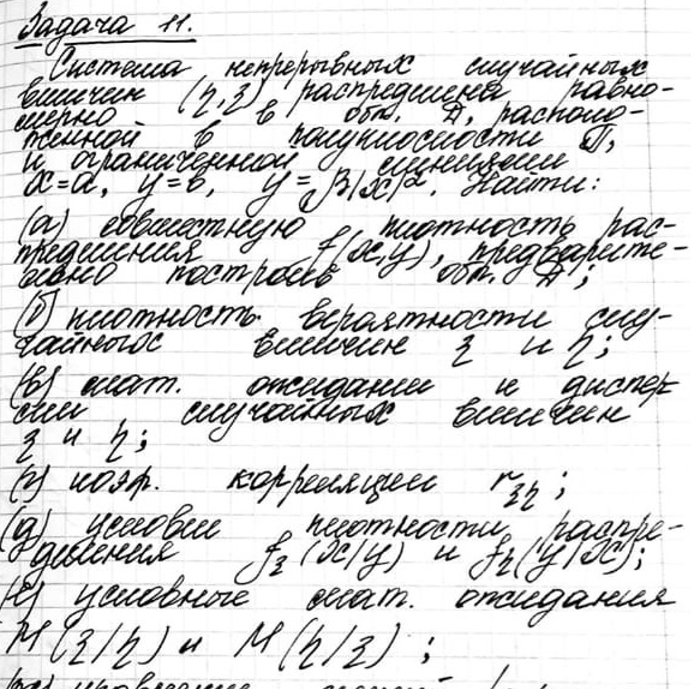 Задача 11.
Система непрерывных случайных
величин (η,ξ) распределена равно-
мерно в обл. D, располо-
женной в полуплоскости П,
и ограниченной линиями
x=a, y=b, y=β|x|^α. Найти:
(а) совместную плотность рас-
пределения f(x,y), предварите-
льно построив обл. D;
(б) плотность вероятности слу-
чайных величин ξ и η;
(в) мат. ожидании и диспер
сии случайных величин
ξ и η;
(г) коэф. корреляции r_ξη;
(д) условн плотности распре-
деления f_ξ(x/y) и f_η(y/x);
(е) условные мат. ожидания
M(ξ/η) и M(η/ξ);